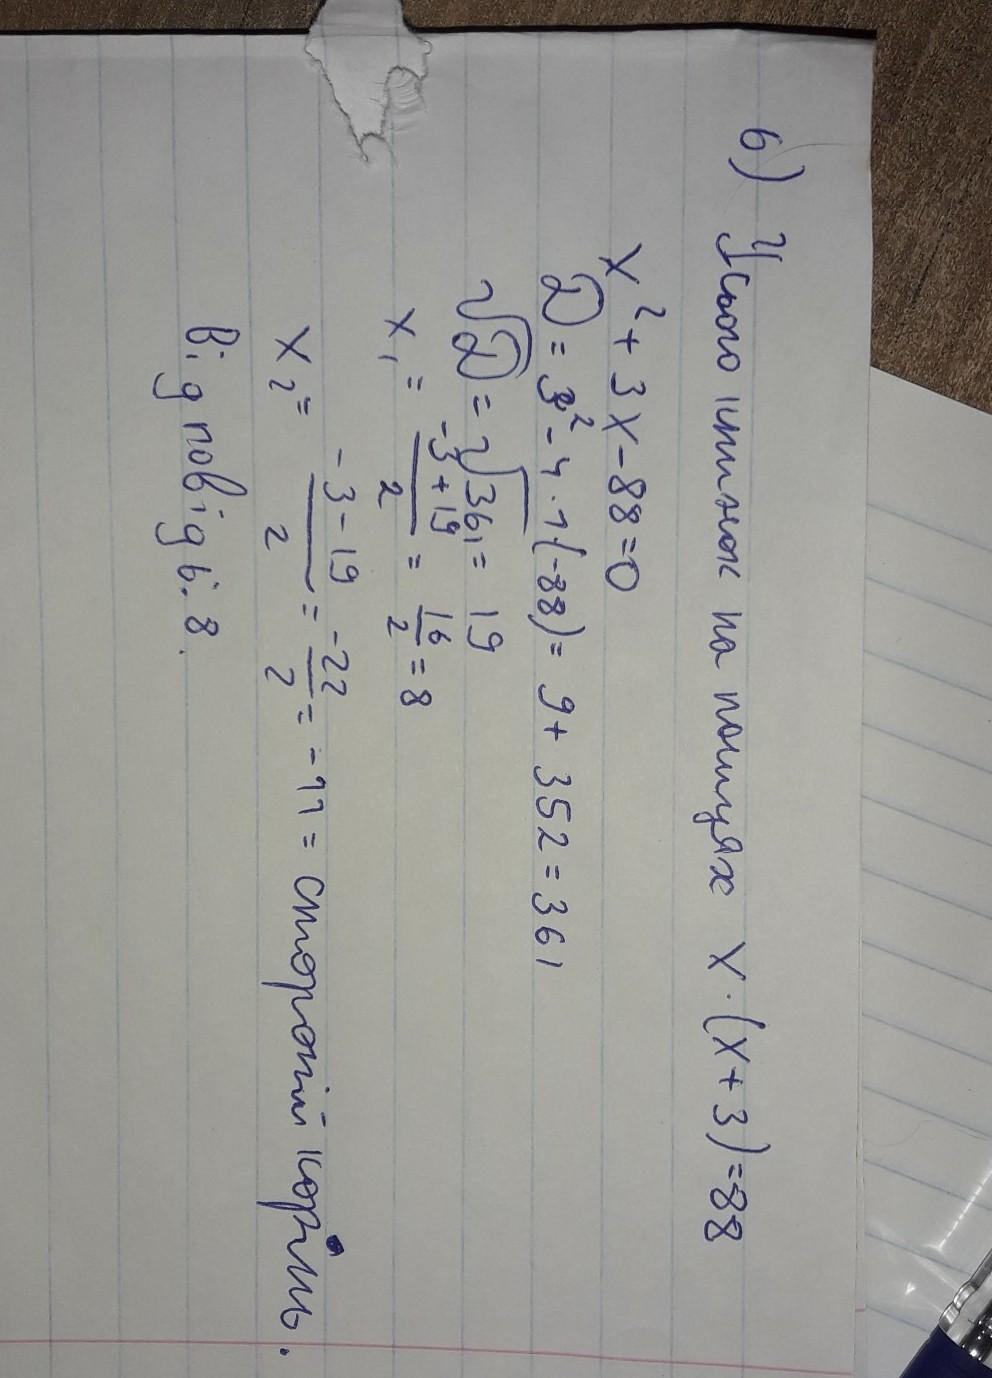 6) Усього книжок на полицях x·(x+3)=88
x²+3x-88=0
D=3²-4·1·(-88)=9+352=361
√D=√361=19
x₁=(-3+19)/2=16/2=8
x₂=(-3-19)/2=-22/2=-11=сторонній корінь.
Відповідь: 8.